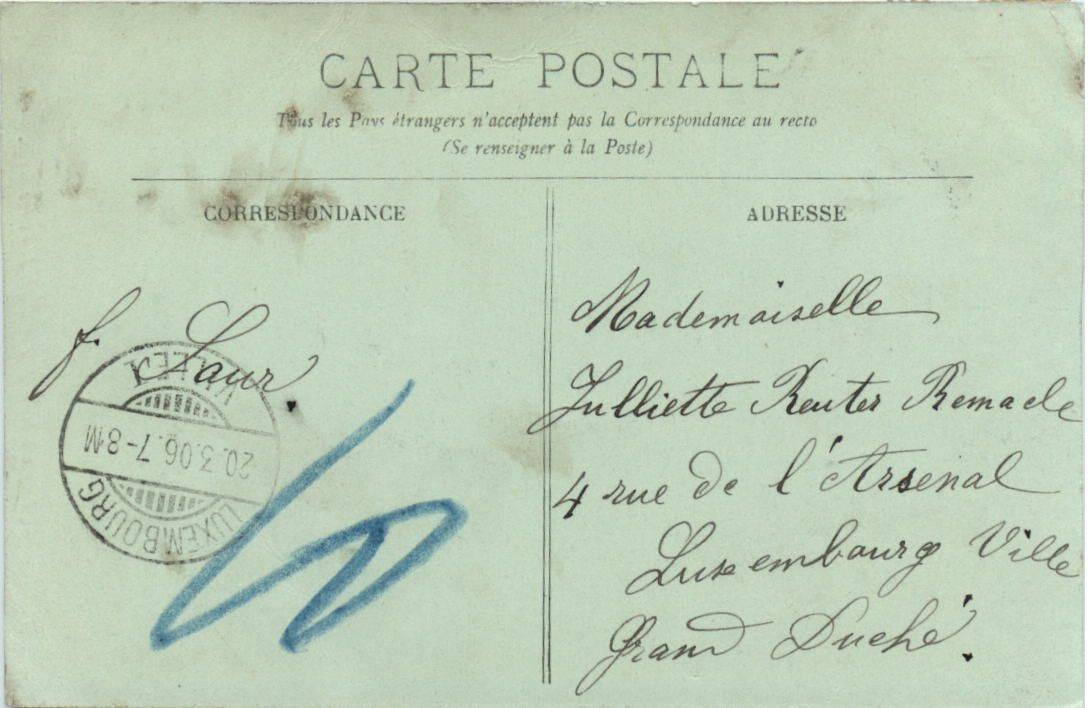 CARTE POSTALE
Tous les Pays étrangers n'acceptent pas la Correspondance au recto
(Se renseigner à la Poste)
CORRESPONDANCE
ADRESSE
f. Laur.
LUXEMBOURG
20.3.06.7-8M
VILLE
10
Mademoiselle
Julliette Reuter Remacle
4 rue de l'Arsenal
Luxembourg Ville
Grand Duché.